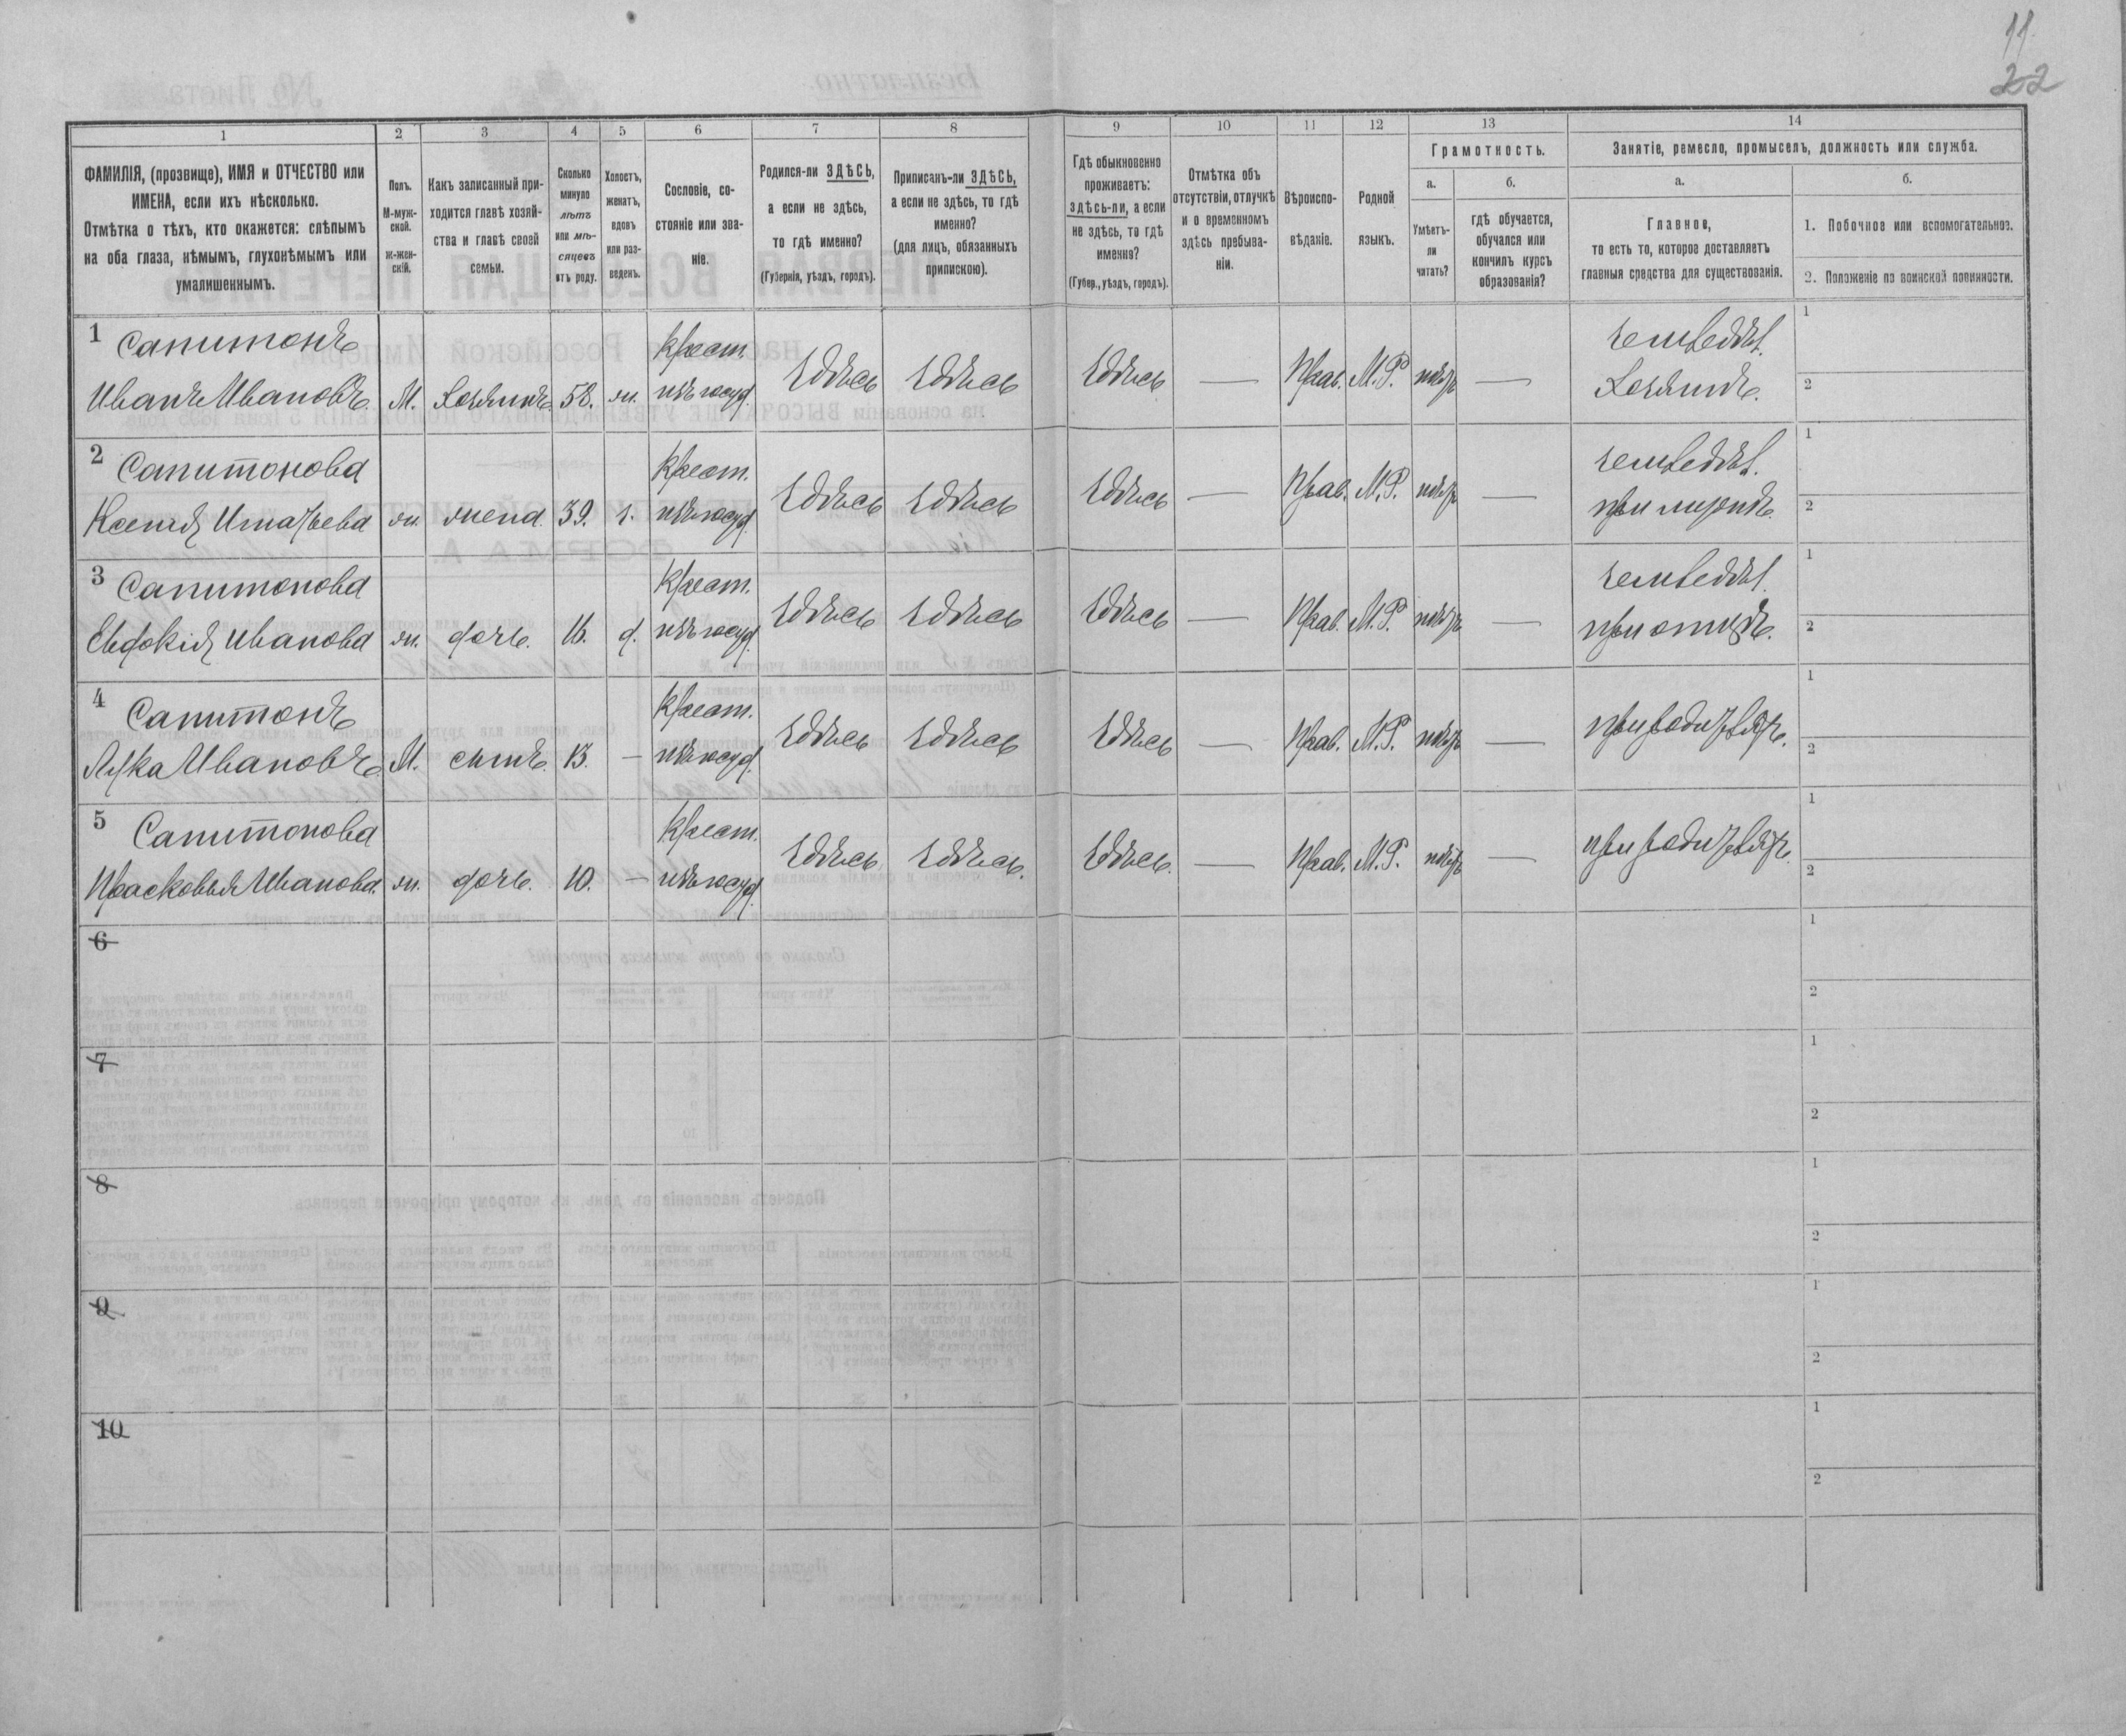 11
22
1
2
3
4
5
6
7
8
9
10
11
12
13
14
ФАМИЛІЯ, (прозвище), ИМЯ и ОТЧЕСТВО или
ИМЕНА, если ихъ нѣсколько.
Отмѣтка о тѣхъ, кто окажется: слѣпымъ
на оба глаза, нѣмымъ, глухонѣмымъ или
умалишеннымъ.
Полъ.
М-муж-
ской.
ж-жен-
скій.
Какъ записанный при-
ходится главѣ хозяй-
ства и главѣ своей
семьи.
Сколько
минуло
лѣтъ
или мѣ-
сяцевъ
отъ роду.
Холостъ,
женатъ,
вдовъ
или раз-
веденъ.
Сословіе, со-
стояніе или зва-
ніе.
Родился-ли ЗДѢСЬ,
а если не здѣсь,
то гдѣ именно?
(Губернія, уѣздъ, городъ).
Приписанъ-ли ЗДѢСЬ,
а если не здѣсь, то гдѣ
именно?
(для лицъ, обязанныхъ
припискою).
Гдѣ обыкновенно
проживаетъ:
здѣсь-ли, а если
не здѣсь, то гдѣ
именно?
(Губер., уѣздъ, городъ).
Отмѣтка объ
отсутствіи, отлучкѣ
и о временномъ
здѣсь пребыва-
ніи.
Вѣроиспо-
вѣданіе.
Родной
языкъ.
Грамотность.
а.
Умѣетъ-
ли
читать?
б.
гдѣ обучается,
обучался или
кончилъ курсъ
образованія?
Занятіе, ремесло, промыселъ, должность или служба.
а.
Главное,
то есть то, которое доставляетъ
главныя средства для существованія.
б.
1. Побочное или вспомогательное.
2. Положеніе по воинской повинности.
1 Сапитонъ Крест. земледѣл. 1
Иванъ Ивановъ. М. Хозяинъ. 58. ж. изъ госуд. Здѣсь Здѣсь Здѣсь — Прав. М.Р. нѣтъ — Хозяинъ. 2
2 Сапитонова Крест. земледѣл. 1
Ксенія Игнатьева ж. жена. 39. з. изъ госуд. Здѣсь Здѣсь Здѣсь — Прав. М.Р. нѣтъ — при мужѣ. 2
3 Сапитонова Крест. земледѣл. 1
Евдокія Иванова ж. дочь. 16. д. изъ госуд. Здѣсь Здѣсь Здѣсь — Прав. М.Р. нѣтъ — при отцѣ. 2
4 Сапитонъ Крест. 1
Лука Ивановъ. М. сынъ. 13. — изъ госуд. Здѣсь Здѣсь Здѣсь — Прав. М.Р. нѣтъ — при родителяхъ. 2
5 Сапитонова Крест. 1
Прасковья Иванова. ж. дочь. 10. — изъ госуд. Здѣсь Здѣсь. Здѣсь. — Прав. М.Р. нѣтъ — при родителяхъ. 2
6 1
2
7 1
2
8 1
2
9 1
2
10 1
2